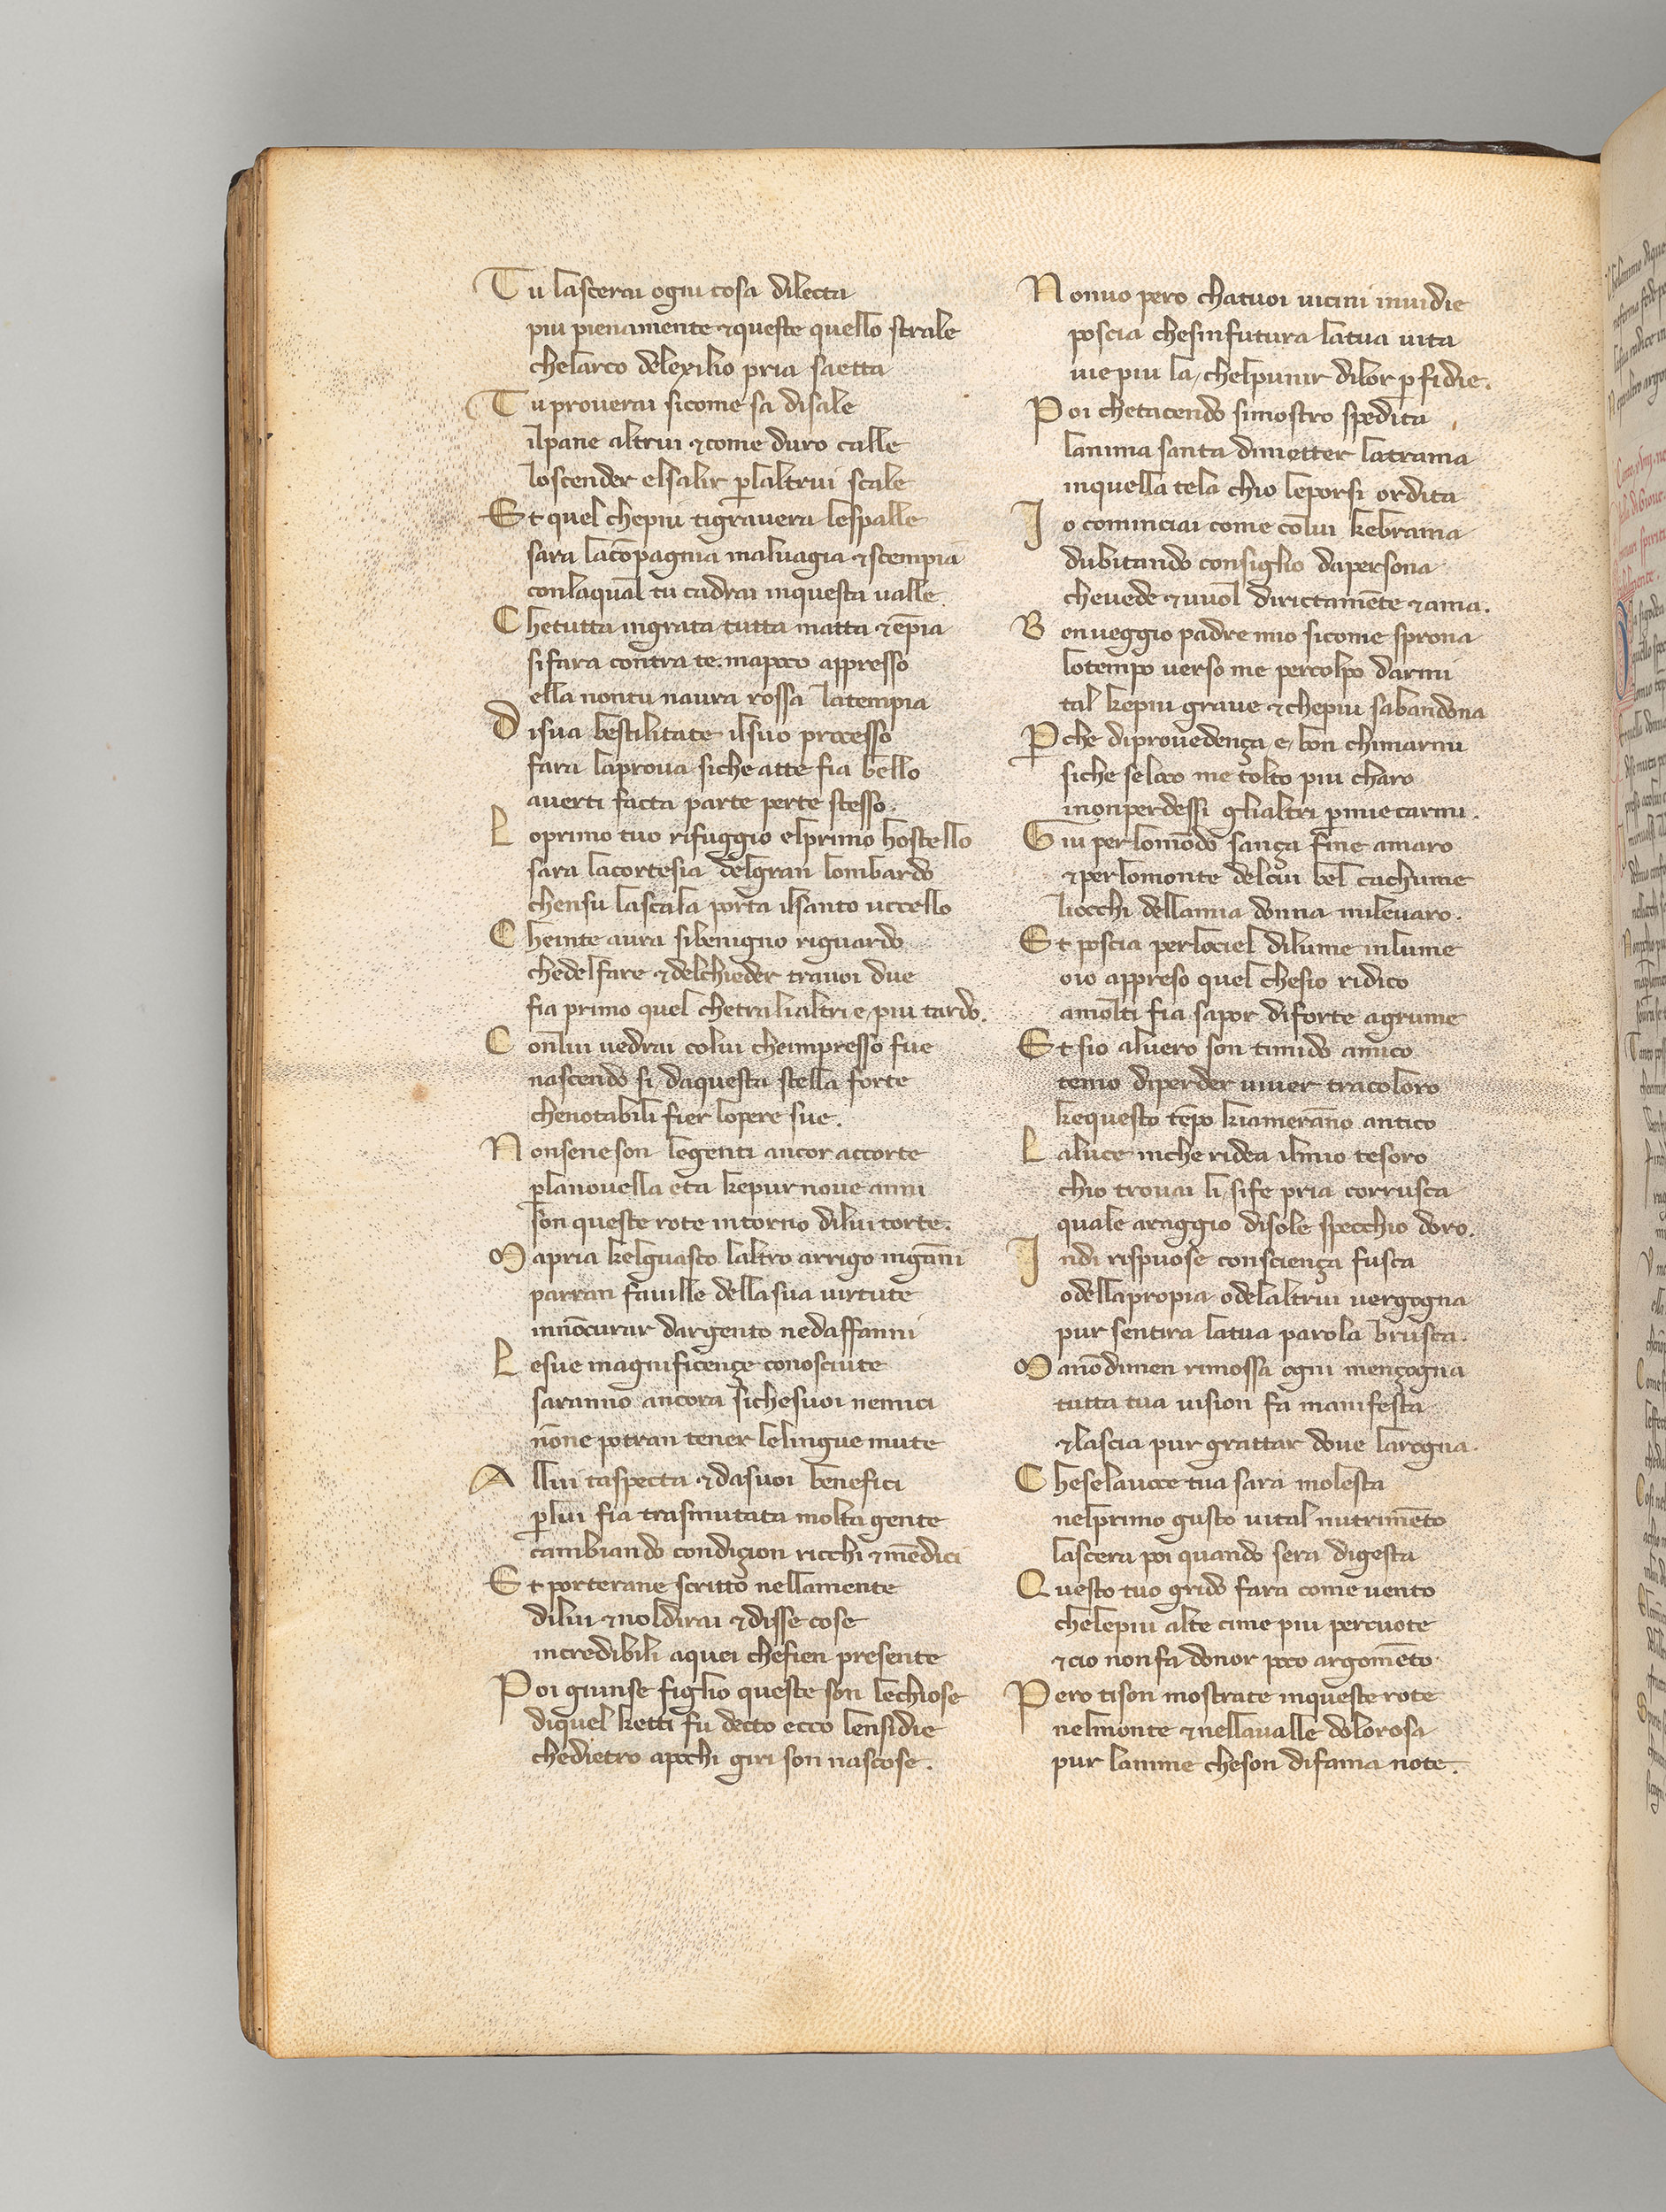 Tu lascerai ogni cosa dilecta
piu pienamente ⁊queste quello strale
chelarco delexilio pria saetta
Tu prouerai sicome sa disale
ilpane altrui ⁊come duro calle
loscender elsalir ꝑlaltrui scale
Et quel chepiu tigrauera lespalle
sara lacōpagnia maluagia ⁊scempia
conlaqual tu cadrai inquesta ualle
Chetutta ingrata tutta matta ⁊ēpia
sifara contra te. mapoco appresso
ella nontu naura rossa latempia
Disua bestilitate ilsuo processo
fara laproua siche atte fia bello
auerti facta parte perte stesso.
Loprimo tuo rifuggio elprimo hostello
sara lacortesia delgran lombardo
chensu lascala porta ilsanto uccello
Cheinte aura sibenigno riguardo
chedelfare ⁊delchieder trauoi due
fia primo quel chetralialtri e piu tardo.
Conlui uedrai colui cheimpresso fue
nascendo si daquesta stella forte
chenotabili fier lopere sue.
Nonseneson legenti ancor accorte
ꝑlanouella eta kepur noue anni
son queste rote intorno dilui torte.
Mapria kelguasco laltro arrigo ingāni
parran fauille dellasua uirtute
innōcurar dargento nedaffanni
Lesue magnificençe conosciute
saranno ancora sichesuoi nemici
nōne potran tener lelingue mute
Allui taspecta ⁊dasuoi benefici
ꝑlui fia trasmutata molta gente
cambiando condiçion ricchi ⁊mēdici
Et porterane scritto nellamente
dilui ⁊noldirai ⁊disse cose
incredibili aquei chefien presente
Poi giunse figlio queste son lechiose
diquel ketti fu decto ecco lensidie
chedietro apochi giri son nascose.
Nonuo pero chatuoi uicini inuidie
poscia chesinfutura latua uita
uie piu la, chelpunir dilor ꝑfidie.
Poi chetacendo simostro spedita
lanima santa dimetter latrama
inquella tela chio leporsi ordita
Io cominciai come colui kebrama
dubitando consiglio dapersona
cheuede ⁊uuol dirictamēte ⁊ama.
Ben ueggio padre mio sicome sprona
lotempo uerso me percolpo darmi
tal kepiu graue ⁊chepiu sabandona
Ꝑche diprouedença e, bon chimarmi
siche seloco me tolto piu charo
inonperdessi glialtri ꝑmiecarmi.
Giu perlomōdo sança fine amaro
⁊perlomonte delcui bel cachume
liocchi dellamia donna mileuaro.
Et poscia perlociel dilume inlume
oio appreso quel chesio ridico
amolti fia sapor diforte agrume
Et sio aluero son timido amico
temo diperder uiuer tracoloro
kequesto tēpo kiamerāno antico
Laluce inche ridea ilmio tesoro
chio trouai li, sife pria corrusca
quale araggio disole specchio doro.
Indi rispuose consciença fusca
odellapropia odelaltrui uergogna
pur sentira latua parola brusca.
Manōdimen rimossa ogni mençogna
tutta tua uision fa manifesta
⁊lascia pur grattar doue larogna.
Cheselauoce tua sara molesta
nelprimo gusto uital nutrimēto
lascera poi quando sera digesta
Questo tuo grido fara come uento
chelepiu alte cime piu percuote
⁊cio nonfa donor poco argomēto
Pero tison mostrate inqueste rote
nelmonte ⁊nellaualle dolorosa
pur lanime cheson difama note.